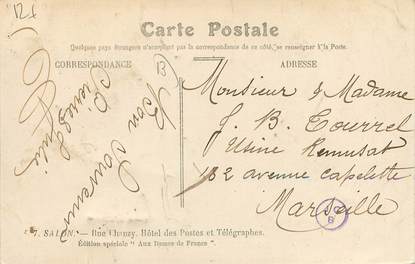 12f
Carte Postale
Quelques pays étrangers n'acceptant pas la correspondance de ce côté, se renseigner à la Poste.
CORRESPONDANCE
ADRESSE
B
Bon Souvenir
Monsieur & Madame
J. B. Tourrel
Usine Remusat
182 avenue Capelette
Marseille
B
7. SALON. — Rue Chanzy. Hôtel des Postes et Télégraphes.
Édition spéciale "Aux Dames de France".